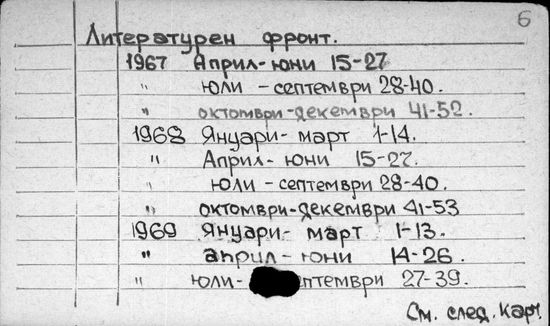 6
Литературен фронт.
1967 Април-юни 15-27
" юли-септември 28-40.
" октомври-декември 41-52.
1968 Януари-март 1-14.
" Април-юни 15-27.
" юли-септември 28-40.
" октомври-декември 41-53
1969 Януари-март 1-13.
" април-юни 14-26.
" юли- птември 27-39.
См. след. карт.